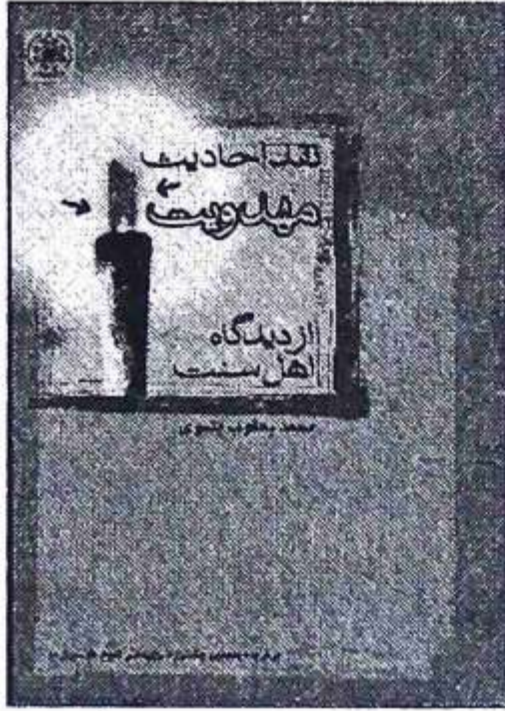 نقد احادیث
مهدویت
از دیدگاه
اهل سنت
محمد یعقوب بشوی